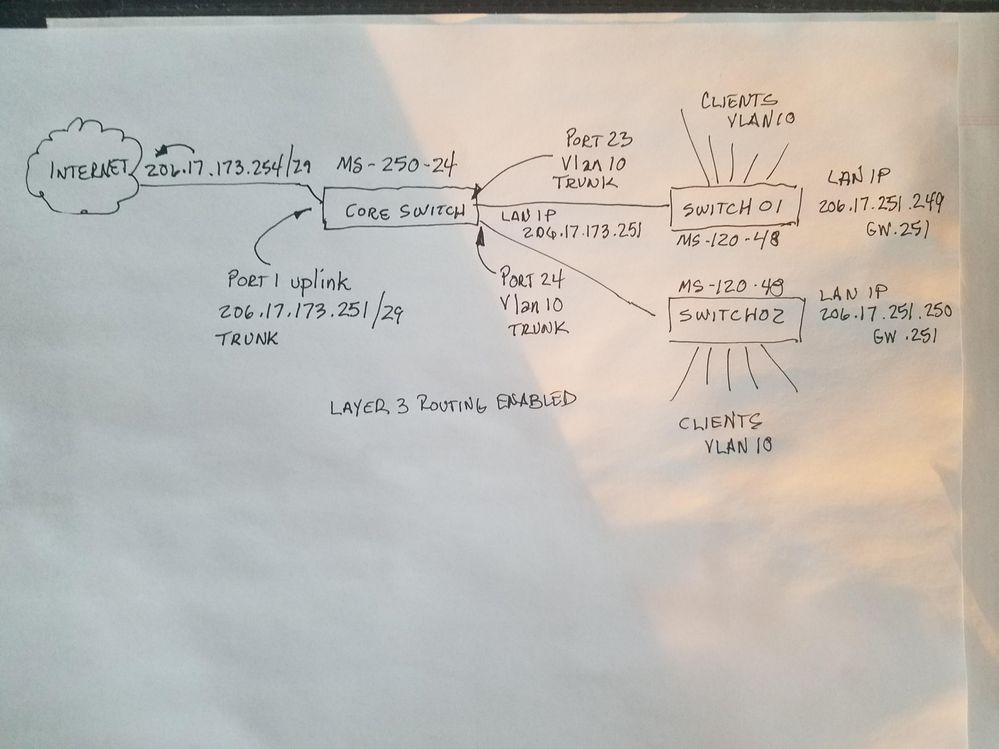 INTERNET
206.17.173.254/29
MS-250-24
CORE SWITCH
PORT 23
Vlan 10
TRUNK
CLIENTS
VLAN 10
SWITCH 01
MS-120-48
LAN IP
206.17.251.249
GW.251
LAN IP
206.17.173.251
PORT 1 uplink
206.17.173.251/29
TRUNK
PORT 24
Vlan 10
TRUNK
MS-120-48
SWITCH02
LAN IP
206.17.251.250
GW .251
LAYER 3 ROUTING ENABLED
CLIENTS
VLAN 10